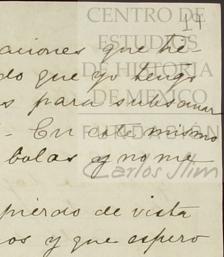 CENTRO DE
ESTUDIOS
DE HISTORIA
DE MEXICO
FUNDACIÓN
Carlos Slim
14
aciones que he-
do que yo tengo
s para subsanar
- En este mismo
bolas y no me
pierdo de vista
os y que espero